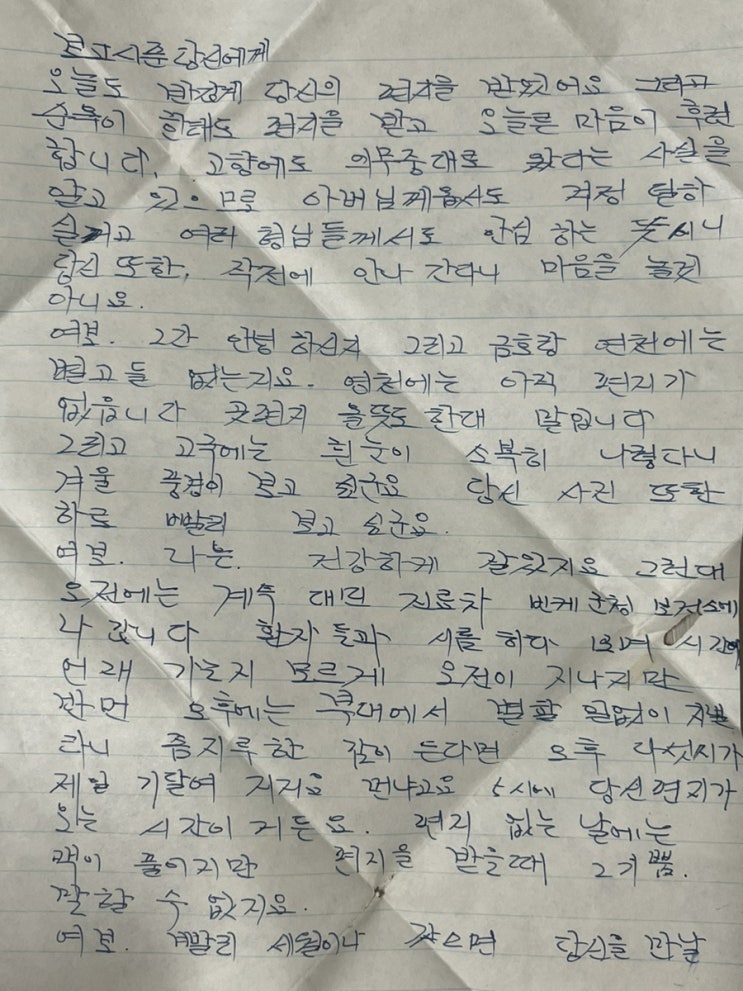 보고시픈 당신에게
오늘도 반갑게 당신의 편지를 받았어요 그리고
순옥이 한태도 편지을 받고 오늘은 마음이 후련
합니다. 고향에도 의무중대로 왔다는 사실을
알고 있으므로 아버님께옵서도 걱정 덜하
실거고 여러 형님들께서도 안심 하는 뜻시니
당신 또한, 작전에 안나 간다니 마음을 놀것
아니요.
여보. 그간 안녕 하신지 그리고 금호랑 연천에는
별고들 없는지요. 영천에는 아직 편지가
없읍니다 곳편지 올뜻도 한대 말입니다
그리고 고국에는 흰눈이 소복히 나렸다니
겨울 풍경이 보고 싶군요 당신 사진 또한
하로 빨리 보고 싶군요.
여보. 나는. 건강하게 잘있지요 그런대
오전에는 계속 대민 진료차 번케 군청 보건소에
나 갑니다 환자들과 시름 하다 보며 시간이
언재 가는지 모르게 오전이 지나지만
반면 오후에는 막대에서 별할 일없이 지낼
라니 좀지루한 감이 든다면 오후 다섯시가
제일 기달여 지지요 먼냐고요 5시에 당신편지가
오는 시간이거든요. 편지 없는 날에는
맥이 풀이지만 편지을 받을때 그기쁨.
말할 수 없지요.
여보. 빨리 세월이나 갔으면 당신을 만날